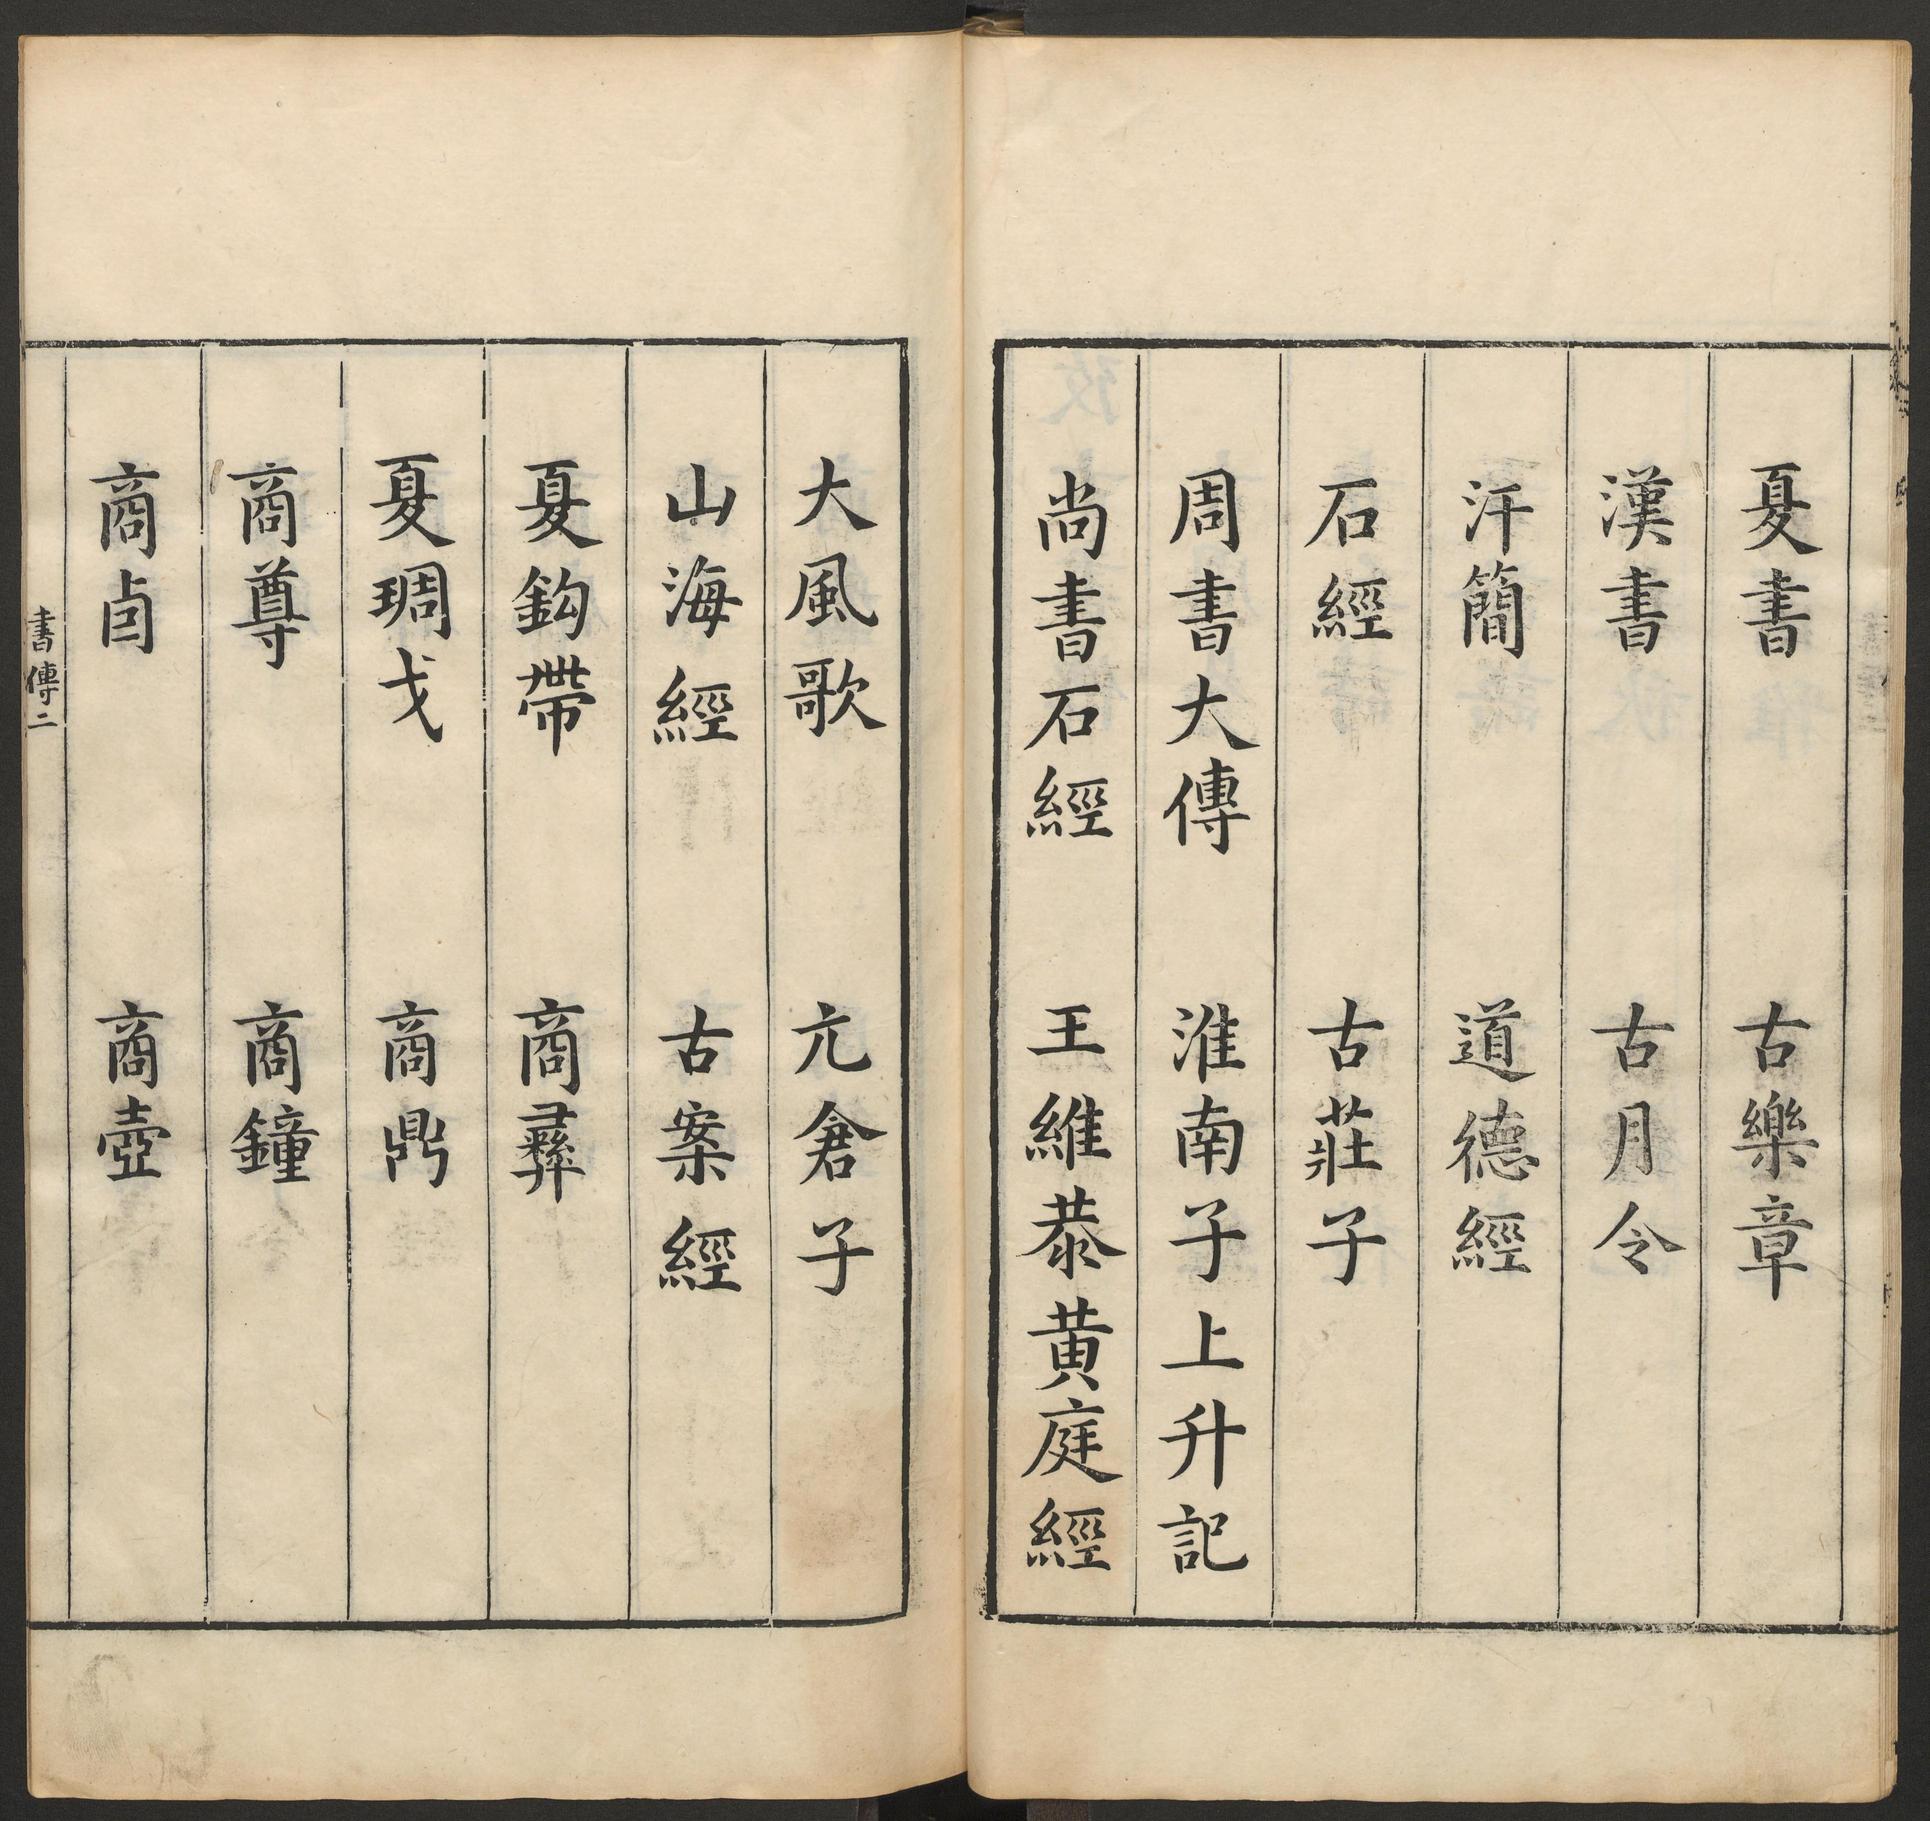 夏書　古樂章
漢書　古月令
汗簡　道德經
石經　古莊子
周書大傳　淮南子上升記
尚書石經　王維恭黄庭經
大風歌　亢倉子
山海經　古案經
夏鈎帶　商彝
夏琱戈　商鼎
商尊　商鐘
商卣　商壺
書傳二